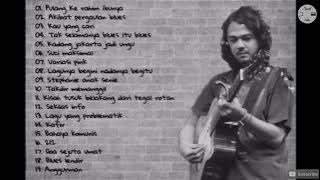 01. Pulang ke rahim ibunya
02. Akibat pergaulan blues
03. Kau yang cari
04. Tak selamanya blues itu blues
05. Kadang jakarta jadi ungu
06. Suci maksimal
07. Variasi pink
08. Lagunya begini nadanya begitu
09. Stephanie anak senie
10. Takdir memanggil
11. Kisah tusuk belakang dari tegal rotan
12. Sekilas info
13. Lagu yang problematik
14. Kafir
15. Bahaya komunis
16. 212
17. Doa sejuta umat
18. Blues lendir
19. Anggurman
Subscribe